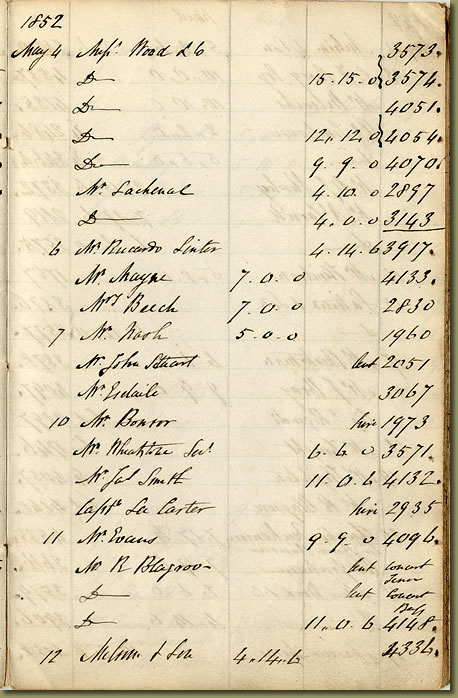 1852
May 4 Messrs Wood & Co 3573.
Do 15.15.0 3574.
Do 4051.
Do 12.12.0 4054.
Do 9.9.0 4070.
Mr Lachenal 4.10.0 2897
Do 4.0.0 3143
6 Mr Ricardo Linter 4.14.6 3917.
Mr Mayne 7.0.0 4133.
Mrs Beech 7.0.0 2830
7 Mr Nash 5.0.0 1960
Mr John Stuart lent 2051
Mr Esdaile 3067
10 Mr Bonsor hire 1973
Mr Wheatstone 6.6.0 3571.
Mr Jas Smith 11.0.6 4132.
Captn Carter hire 2935
11 Mr Evans 9.9.0 4096.
Mr R Blagrove lent concert Tenor
Do lent Concert Bass
Do 11.0.6 4148.
12 & Son 4.14.6 4336.